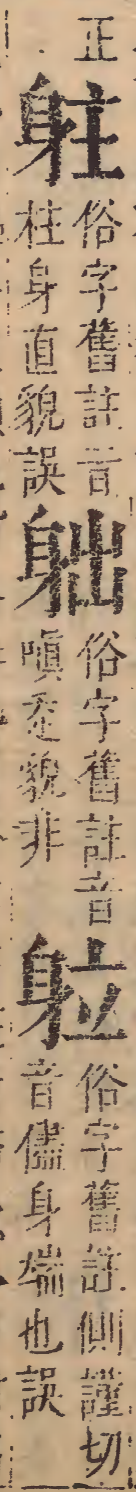 正
俗字舊註音
柱身直貌誤
俗字舊註音
嗔貌非
俗字舊註側謹切
音儘身端也誤